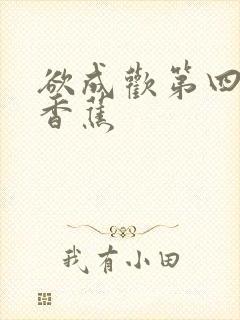 欲成歡第四
香蕉
我有小田